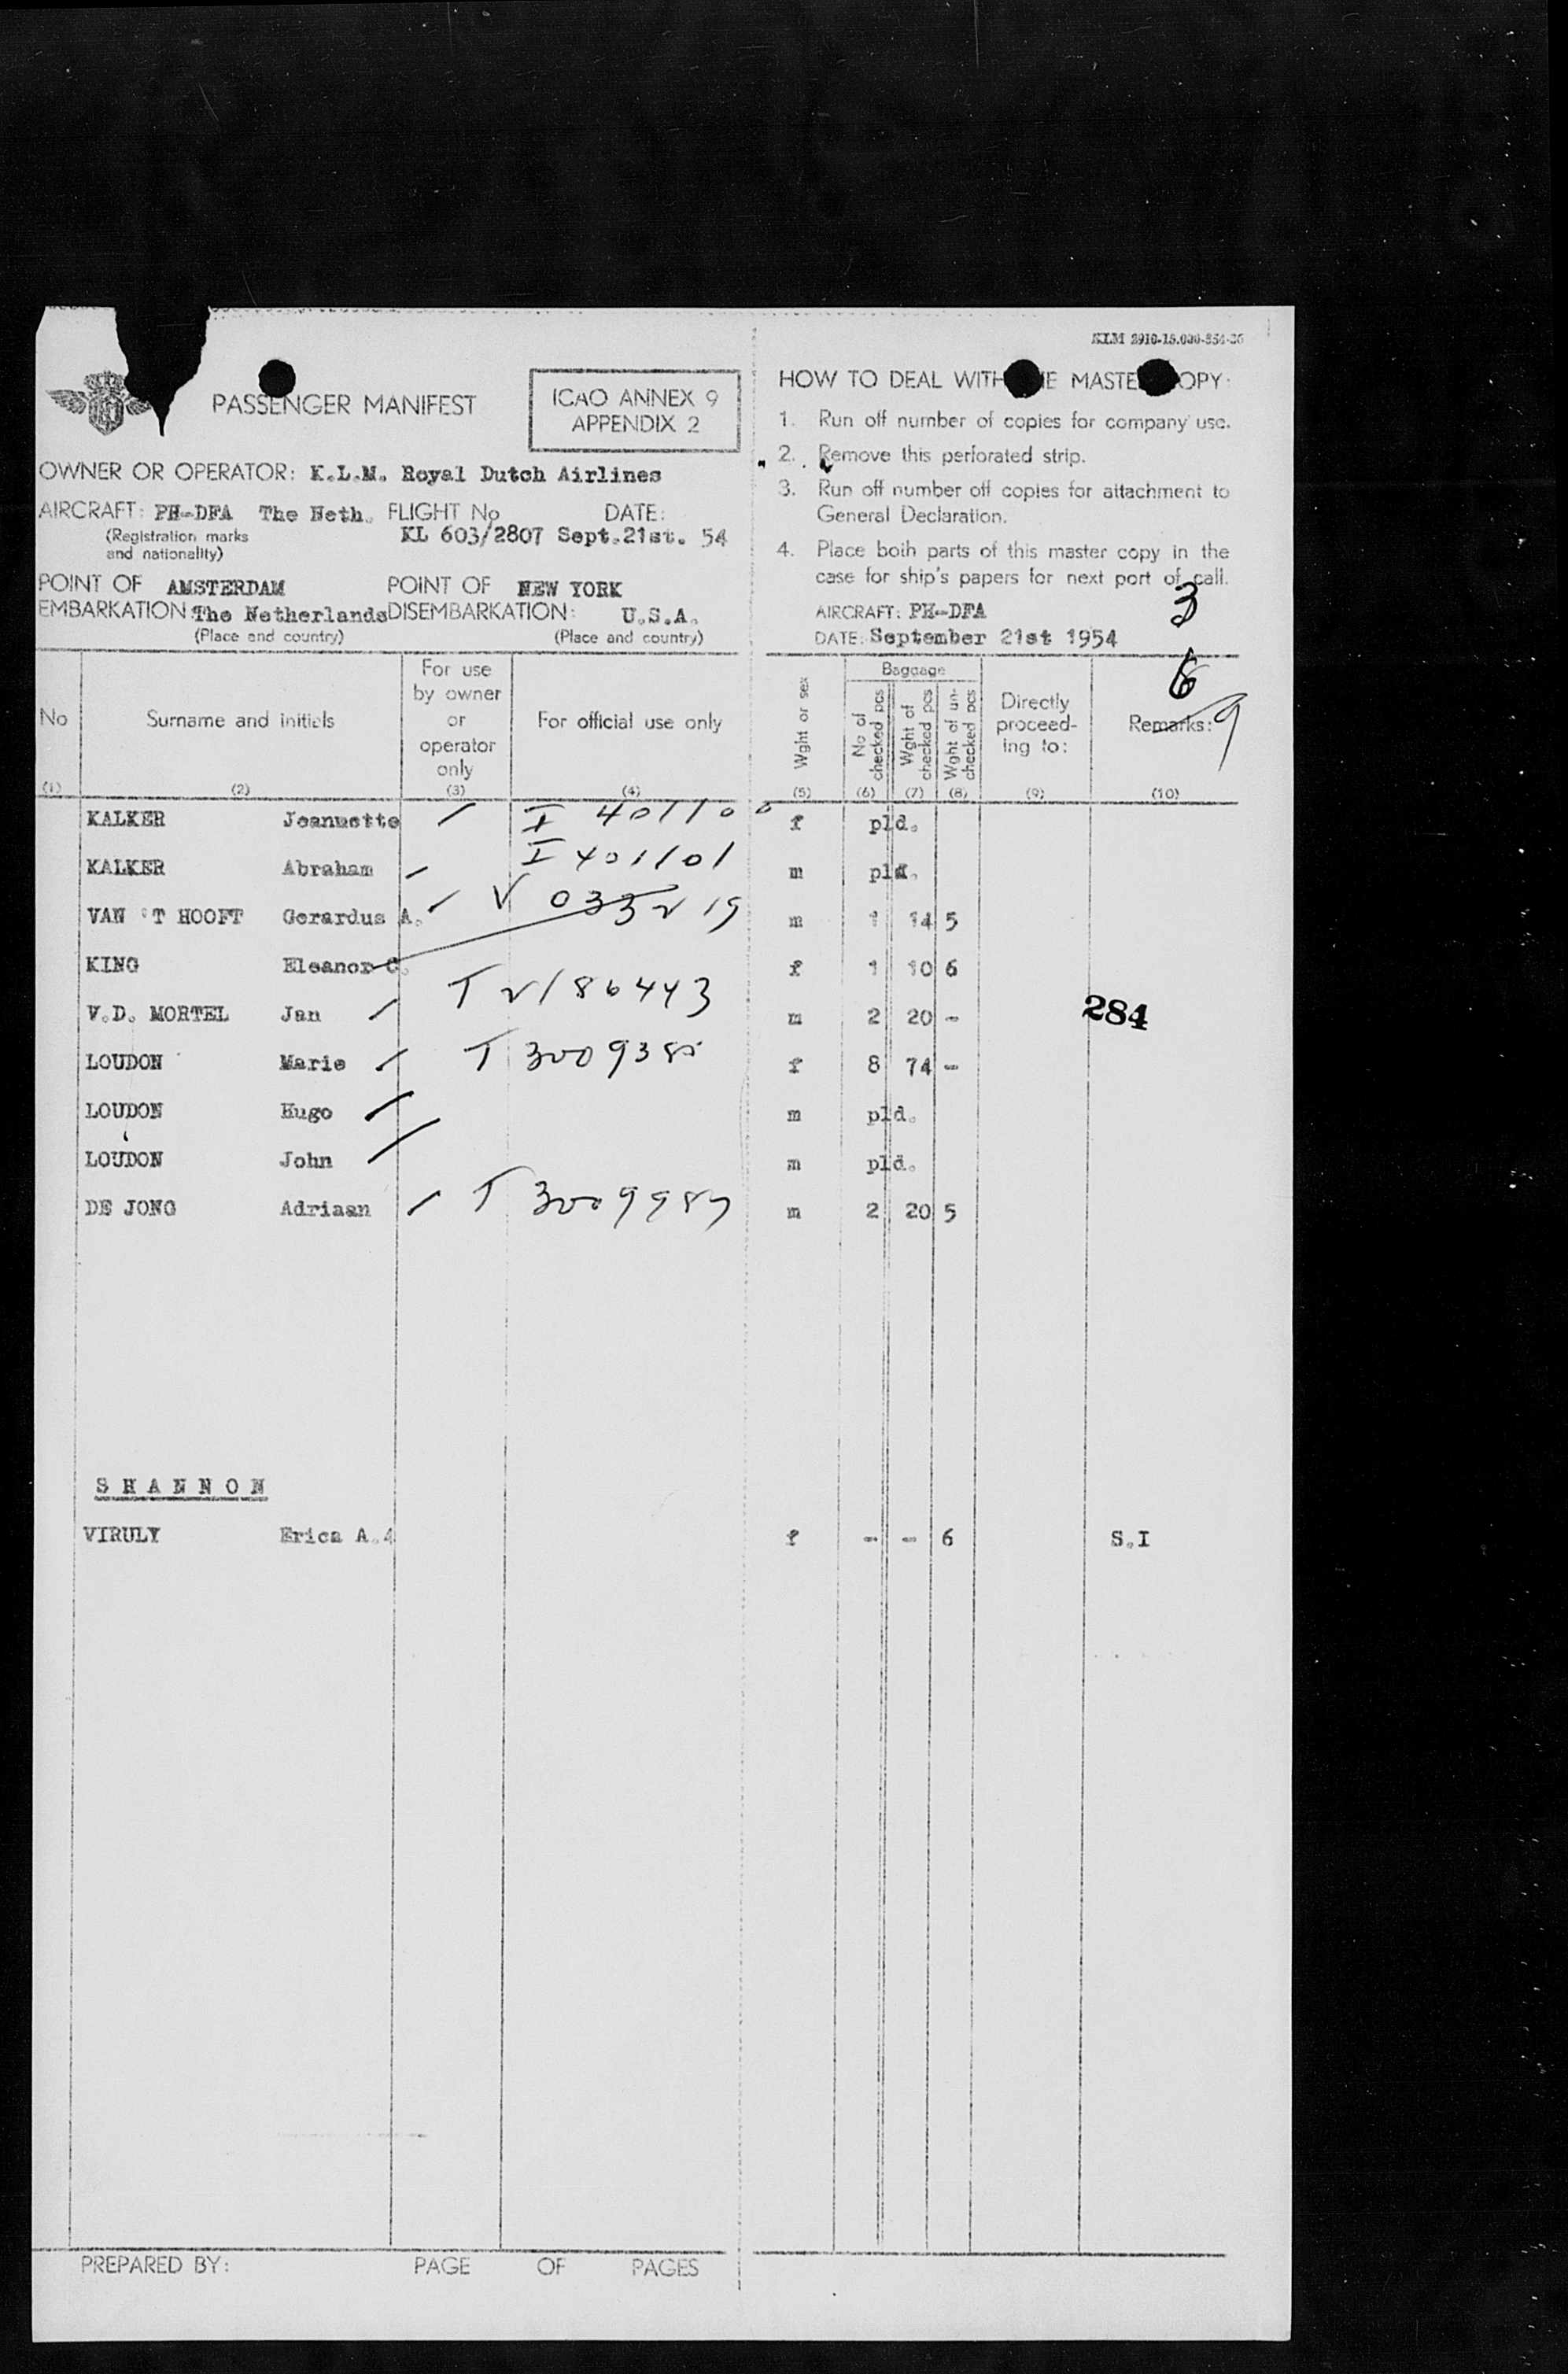 KLM 2910-15.000-854-36
PASSENGER MANIFEST
ICAO ANNEX 9
APPENDIX 2
OWNER OR OPERATOR: K.L.M. Royal Dutch Airlines
AIRCRAFT: PH-DFA The Neth. FLIGHT No DATE:
(Registration marks and nationality) KL 603/2807 Sept.21st. 54
POINT OF AMSTERDAM POINT OF NEW YORK
EMBARKATION: The Netherlands DISEMBARKATION: U.S.A.
(Place and country) (Place and country)
HOW TO DEAL WITH E MASTE OPY:
1. Run off number of copies for company use.
2. Remove this perforated strip.
3. Run off number off copies for attachment to
General Declaration.
4. Place both parts of this master copy in the
case for ship's papers for next port of call.
AIRCRAFT: PH-DFA
DATE: September 21st 1954
3
6
9
No Surname and initials For use by owner or operator only For official use only Wght or sex Baggage No of checked pcs Wght of checked pcs Wght of un-checked pcs Directly proceed-ing to: Remarks:
(1) (2) (3) (4) (5) (6) (7) (8) (9) (10)
KALKER Jeannette I 401100 f pld.
KALKER Abraham I 401101 m pld.
VAN 'T HOOFT Gerardus A. V 033219 m 1 14 5
KING Eleanor C. f 1 10 6
V.D. MORTEL Jan T 2186443 m 2 20 - 284
LOUDON Marie T 3009385 f 8 74 -
LOUDON Hugo m pld.
LOUDON John m pld.
DE JONG Adriaan T 3009987 m 2 20 5
SHANNON
VIRULY Erica A. f - - 6 S.I
PREPARED BY: PAGE OF PAGES